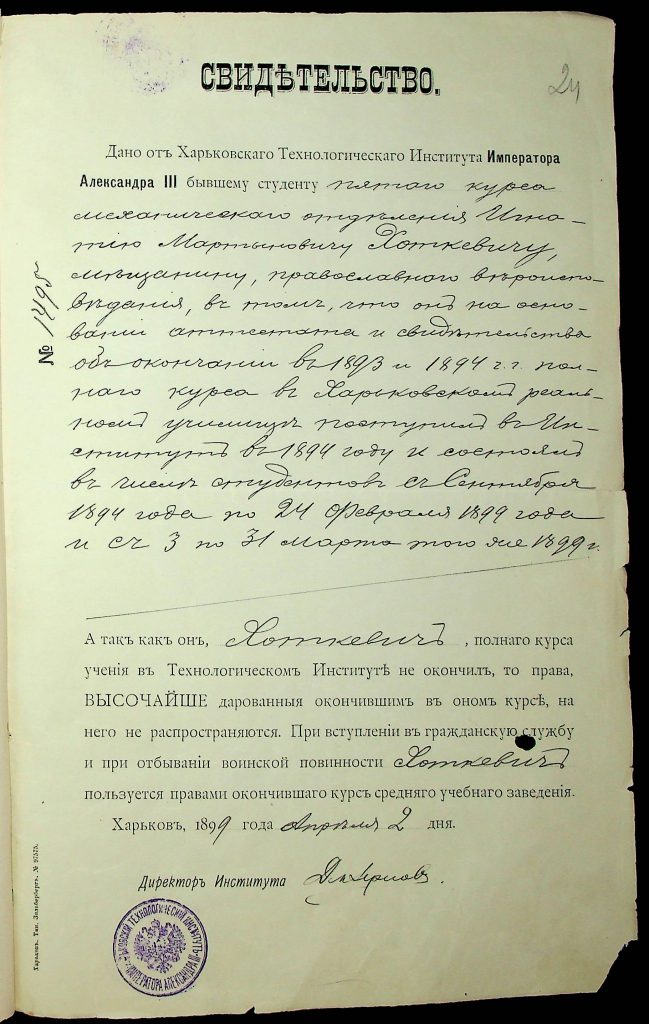 24
СВИДѢТЕЛЬСТВО.
Дано отъ Харьковскаго Технологическаго Института Императора
Александра III бывшему студенту пятаго курса
механическаго отдѣленія Игна-
тію Мартыновичу Хоткевичу,
мѣщанину, православнаго вѣроиспо-
вѣданія, въ томъ, что онъ на осно-
ваніи аттестата и свидѣтельства
объ окончаніи въ 1893 и 1894 г.г. пол-
наго курса въ Харьковскомъ реаль-
номъ училищѣ поступилъ въ Ин-
ститутъ въ 1894 году и состоялъ
въ числѣ студентовъ съ Сентября
1894 года по 24 Февраля 1899 года
и съ 3 по 31 Марта того же 1899 г.
№ 1495
А такъ какъ онъ, Хоткевичъ, полнаго курса
ученія въ Технологическомъ Институтѣ не окончилъ, то права,
ВЫСОЧАЙШЕ дарованныя окончившимъ въ ономъ курсѣ, на
него не распространяются. При вступленіи въ гражданскую службу
и при отбываніи воинской повинности Хоткевичъ
пользуется правами окончившаго курсъ средняго учебнаго заведенія.
Харьковъ, 1899 года Апрѣля 2 дня.
Директоръ Института
ХАРЬКОВСКІЙ ТЕХНОЛОГИЧЕСКІЙ ИНСТИТУТЪ ИМПЕРАТОРА АЛЕКСАНДРА III
Харьковъ. Тип. Зильберберга. № 97575.